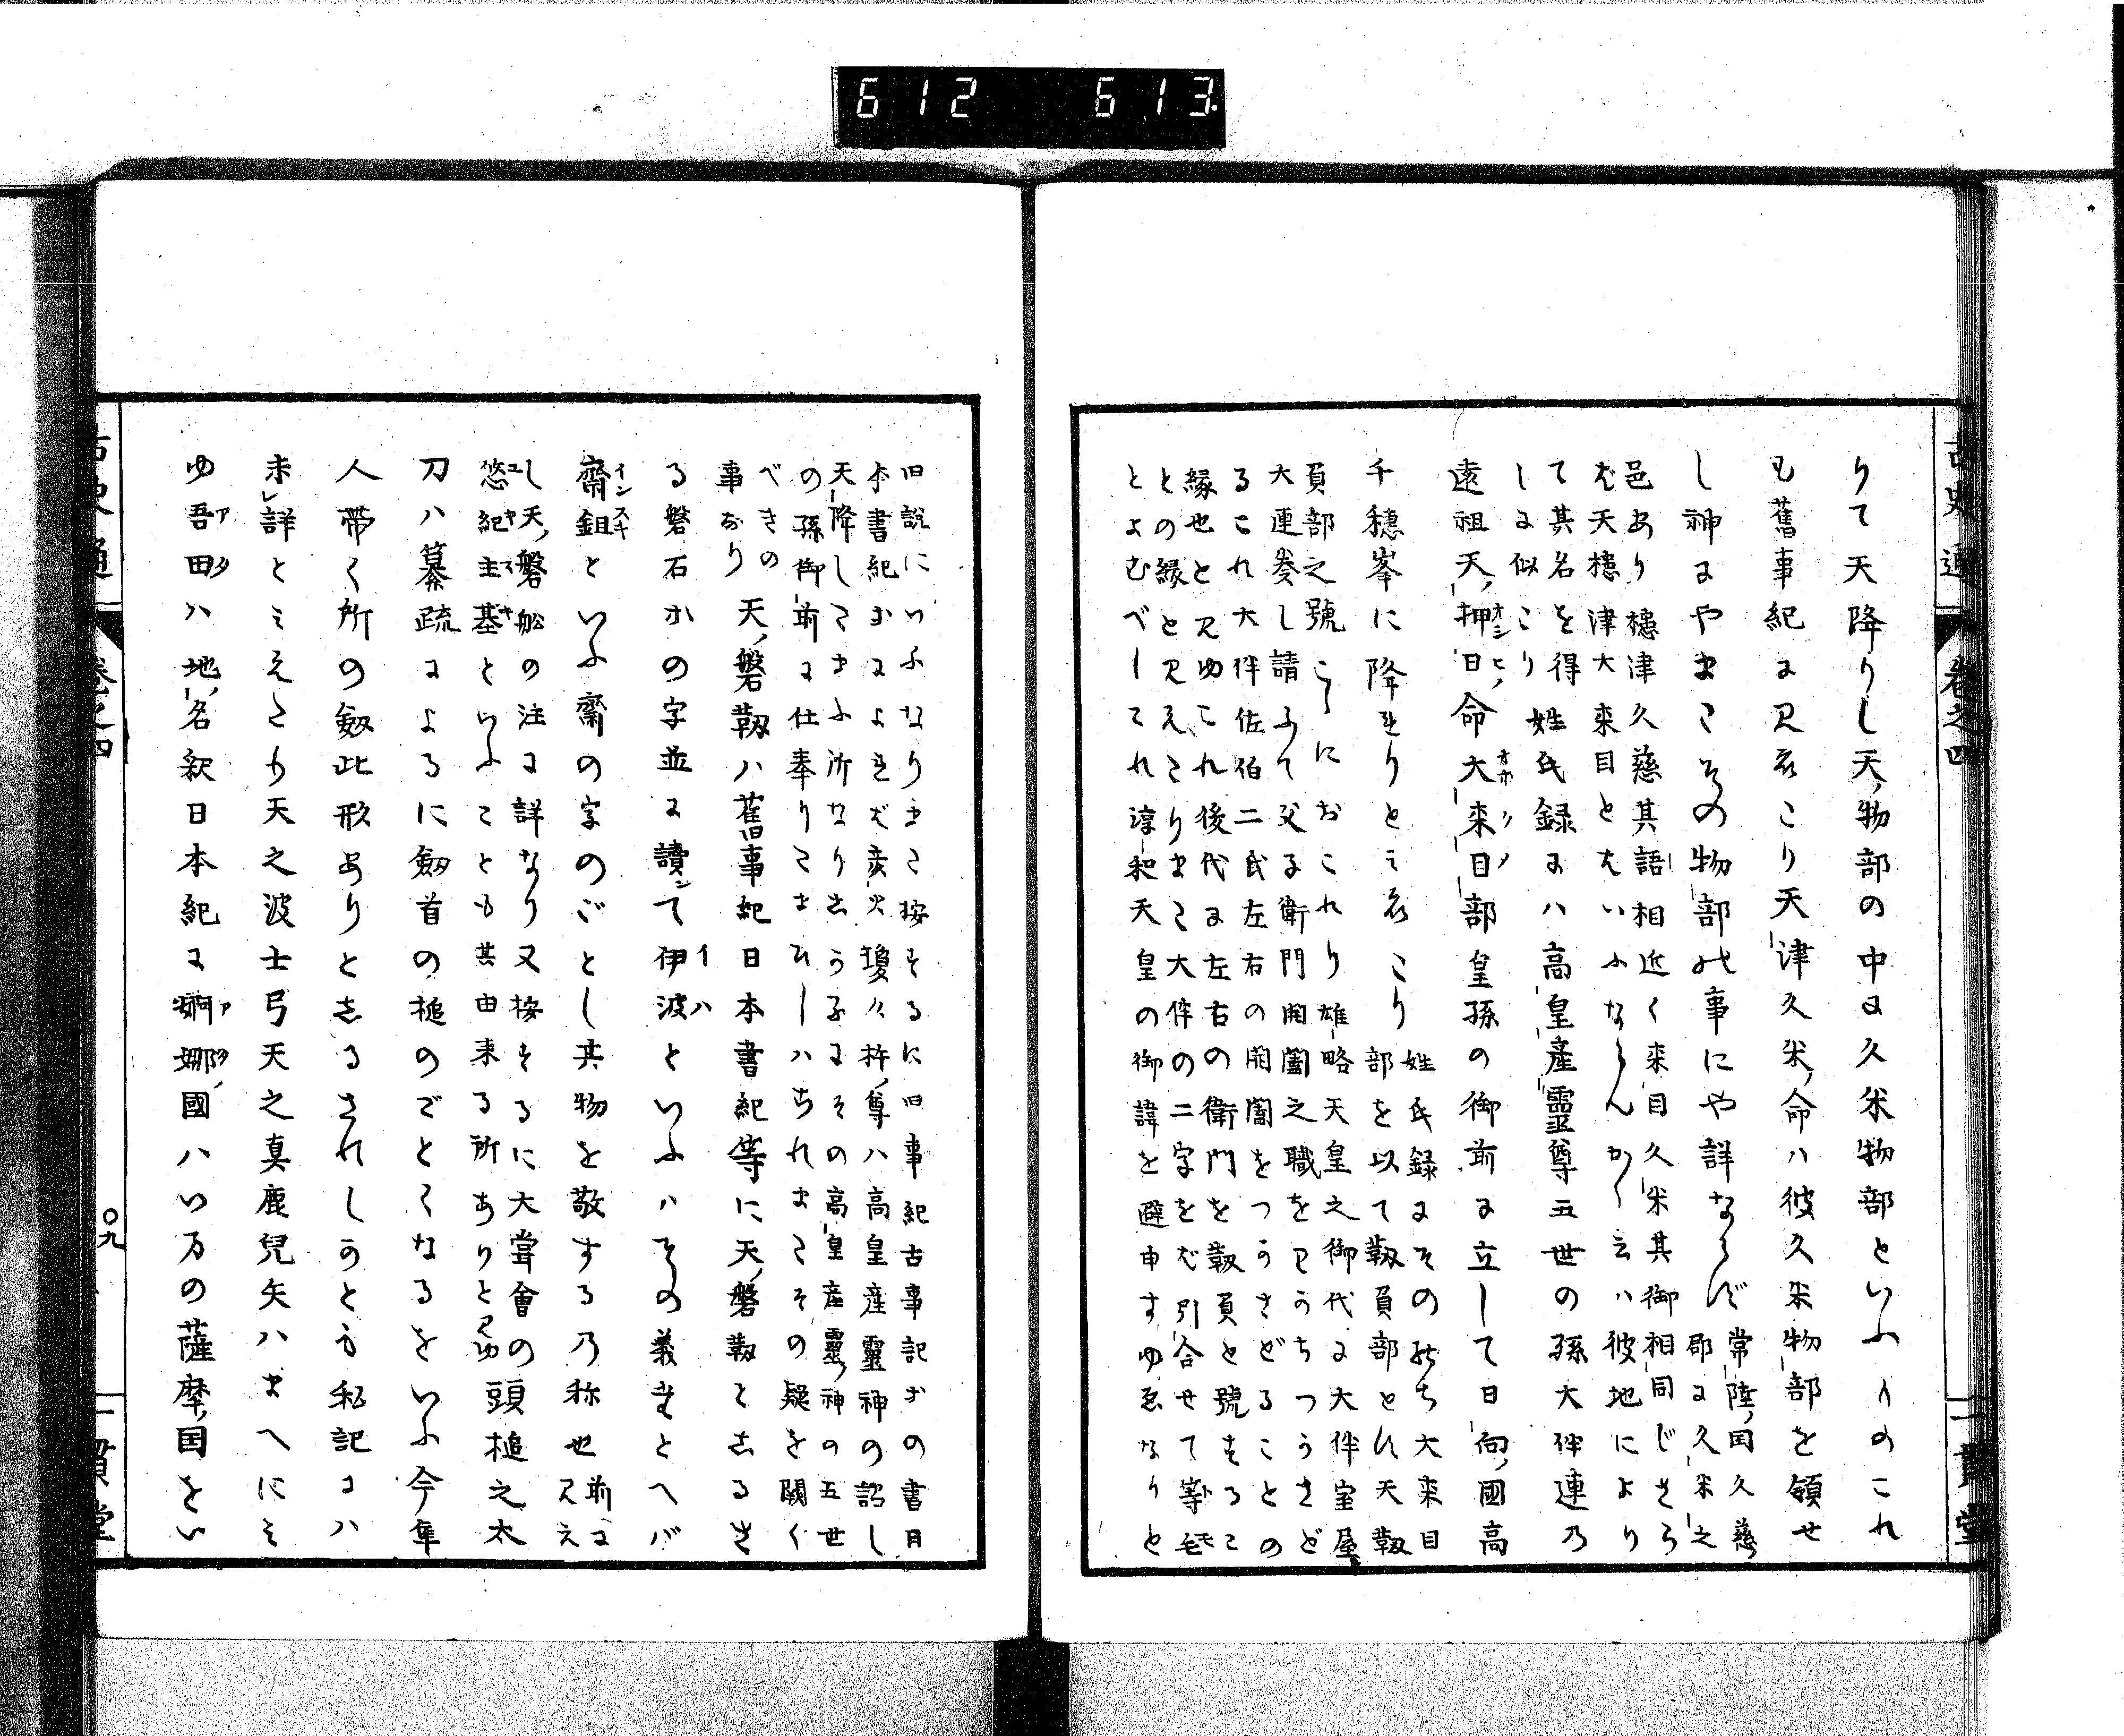 612 613
古史通 卷之四 一貫堂
りて天降りし天物部の中に久米物部といふものこれ
も舊事紀に見えたり天津久米命ハ彼久米物部を領せ
し神にやまたその物部の事にや詳ならず
常陸国久慈
郡に久米之
邑あり穂津久慈其語相近く来目久米其御相同じさら
ば天穂津大来目とはいふならんか
云ハ彼地により
て其名を得
しに似たり
姓氏録にハ高皇産靈尊五世の孫大伴連乃
遠祖天押日命大来目部皇孫の御前に立して日向國高
オシヒノ オホクメ
千穂峯に降れりとみえたり
姓氏録にそののち大来目
部を以て靱負部とし天靱
負部之號こゝにおこれり雄略天皇之御代に大伴室屋
大連奏し請ふて父子衛門開闔之職を
つうさど
るこれ大伴佐伯二氏左右の開闔をつうさどることの
縁也と見ゆこれ後代に左右の衛門を靱負と號するこ
との縁と見えたりまた大伴の二字をば引合せて等毛
とよむべし
淳和天皇の御諱を避申すゆゑなりと
旧説にいふなり
按ずるに旧事紀古事記
の書日
本書紀
によれば
火瓊々杵尊ハ高皇産靈神の詔し
天降し
ふ所なり
その高皇産靈神の五世
の孫御前に仕奉りたまひしハ
その疑を闕く
べきの
事なり
天磐靱ハ舊事紀日本書紀等に天磐靱としるさ
る磐石
の字並に讀て伊波といふハその義
とへバ
イハ
齋鉏といふ齋の字のごとし其物を敬する乃称也
前に
見え
インスキ
し天磐船の注に詳なり又按ずるに大嘗會の
悠紀主基といふことも其由来る所ありと見ゆ
ユキ スキ
頭槌之太
刀ハ纂疏によるに劔首の槌のごとくなるをいふ今隼
人帯く所の劔此形ありとしるされしものとも私記にハ
未詳とみえたり天之波士弓天之真鹿兒矢ハまへにみ
ゆ吾田ハ地名釈日本紀に婀娜國ハいまの薩摩国をい
アタ アタ
古史通 卷之四 〇九 一貫堂